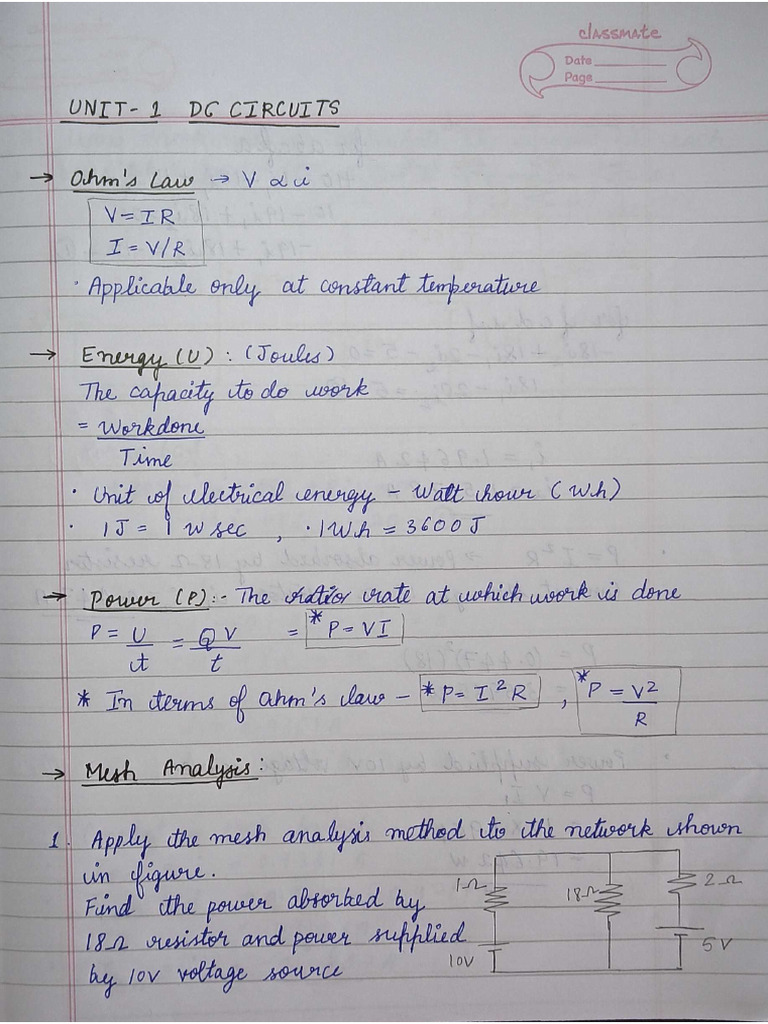 classmate
Date
Page
UNIT-1 DC CIRCUITS
→ Ohm's Law → V ∝ i
V = IR
I = V/R
· Applicable only at constant temperature
→ Energy (U) : (Joules)
The capacity to do work
= Workdone
Time
· Unit of electrical energy - Watt hour (W.h)
· 1J = 1 W sec , · 1 W.h = 3600 J
→ Power (P) :- The rate at which work is done
P = U/t = QV/t = *P = VI
* In terms of Ohm's law - *P = I²R , *P = V²/R
→ Mesh Analysis :
1. Apply the mesh analysis method to the network shown
in figure.
Find the power absorbed by
18Ω resistor and power supplied
by 10V voltage source
1Ω 18Ω 2Ω
10V 5V